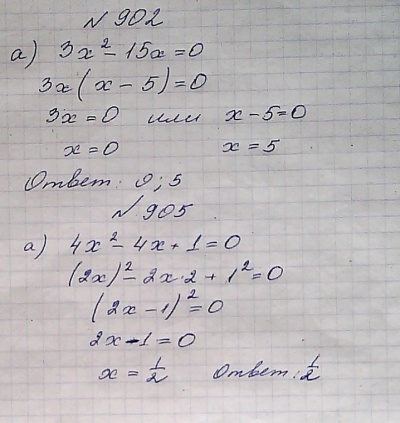 № 902
а) 3x² - 15x = 0
3x(x - 5) = 0
3x = 0 или x - 5 = 0
x = 0 x = 5
Ответ: 0; 5
№ 905
а) 4x² - 4x + 1 = 0
(2x)² - 2x·2 + 1² = 0
(2x - 1)² = 0
2x - 1 = 0
x = 1/2 Ответ: 1/2